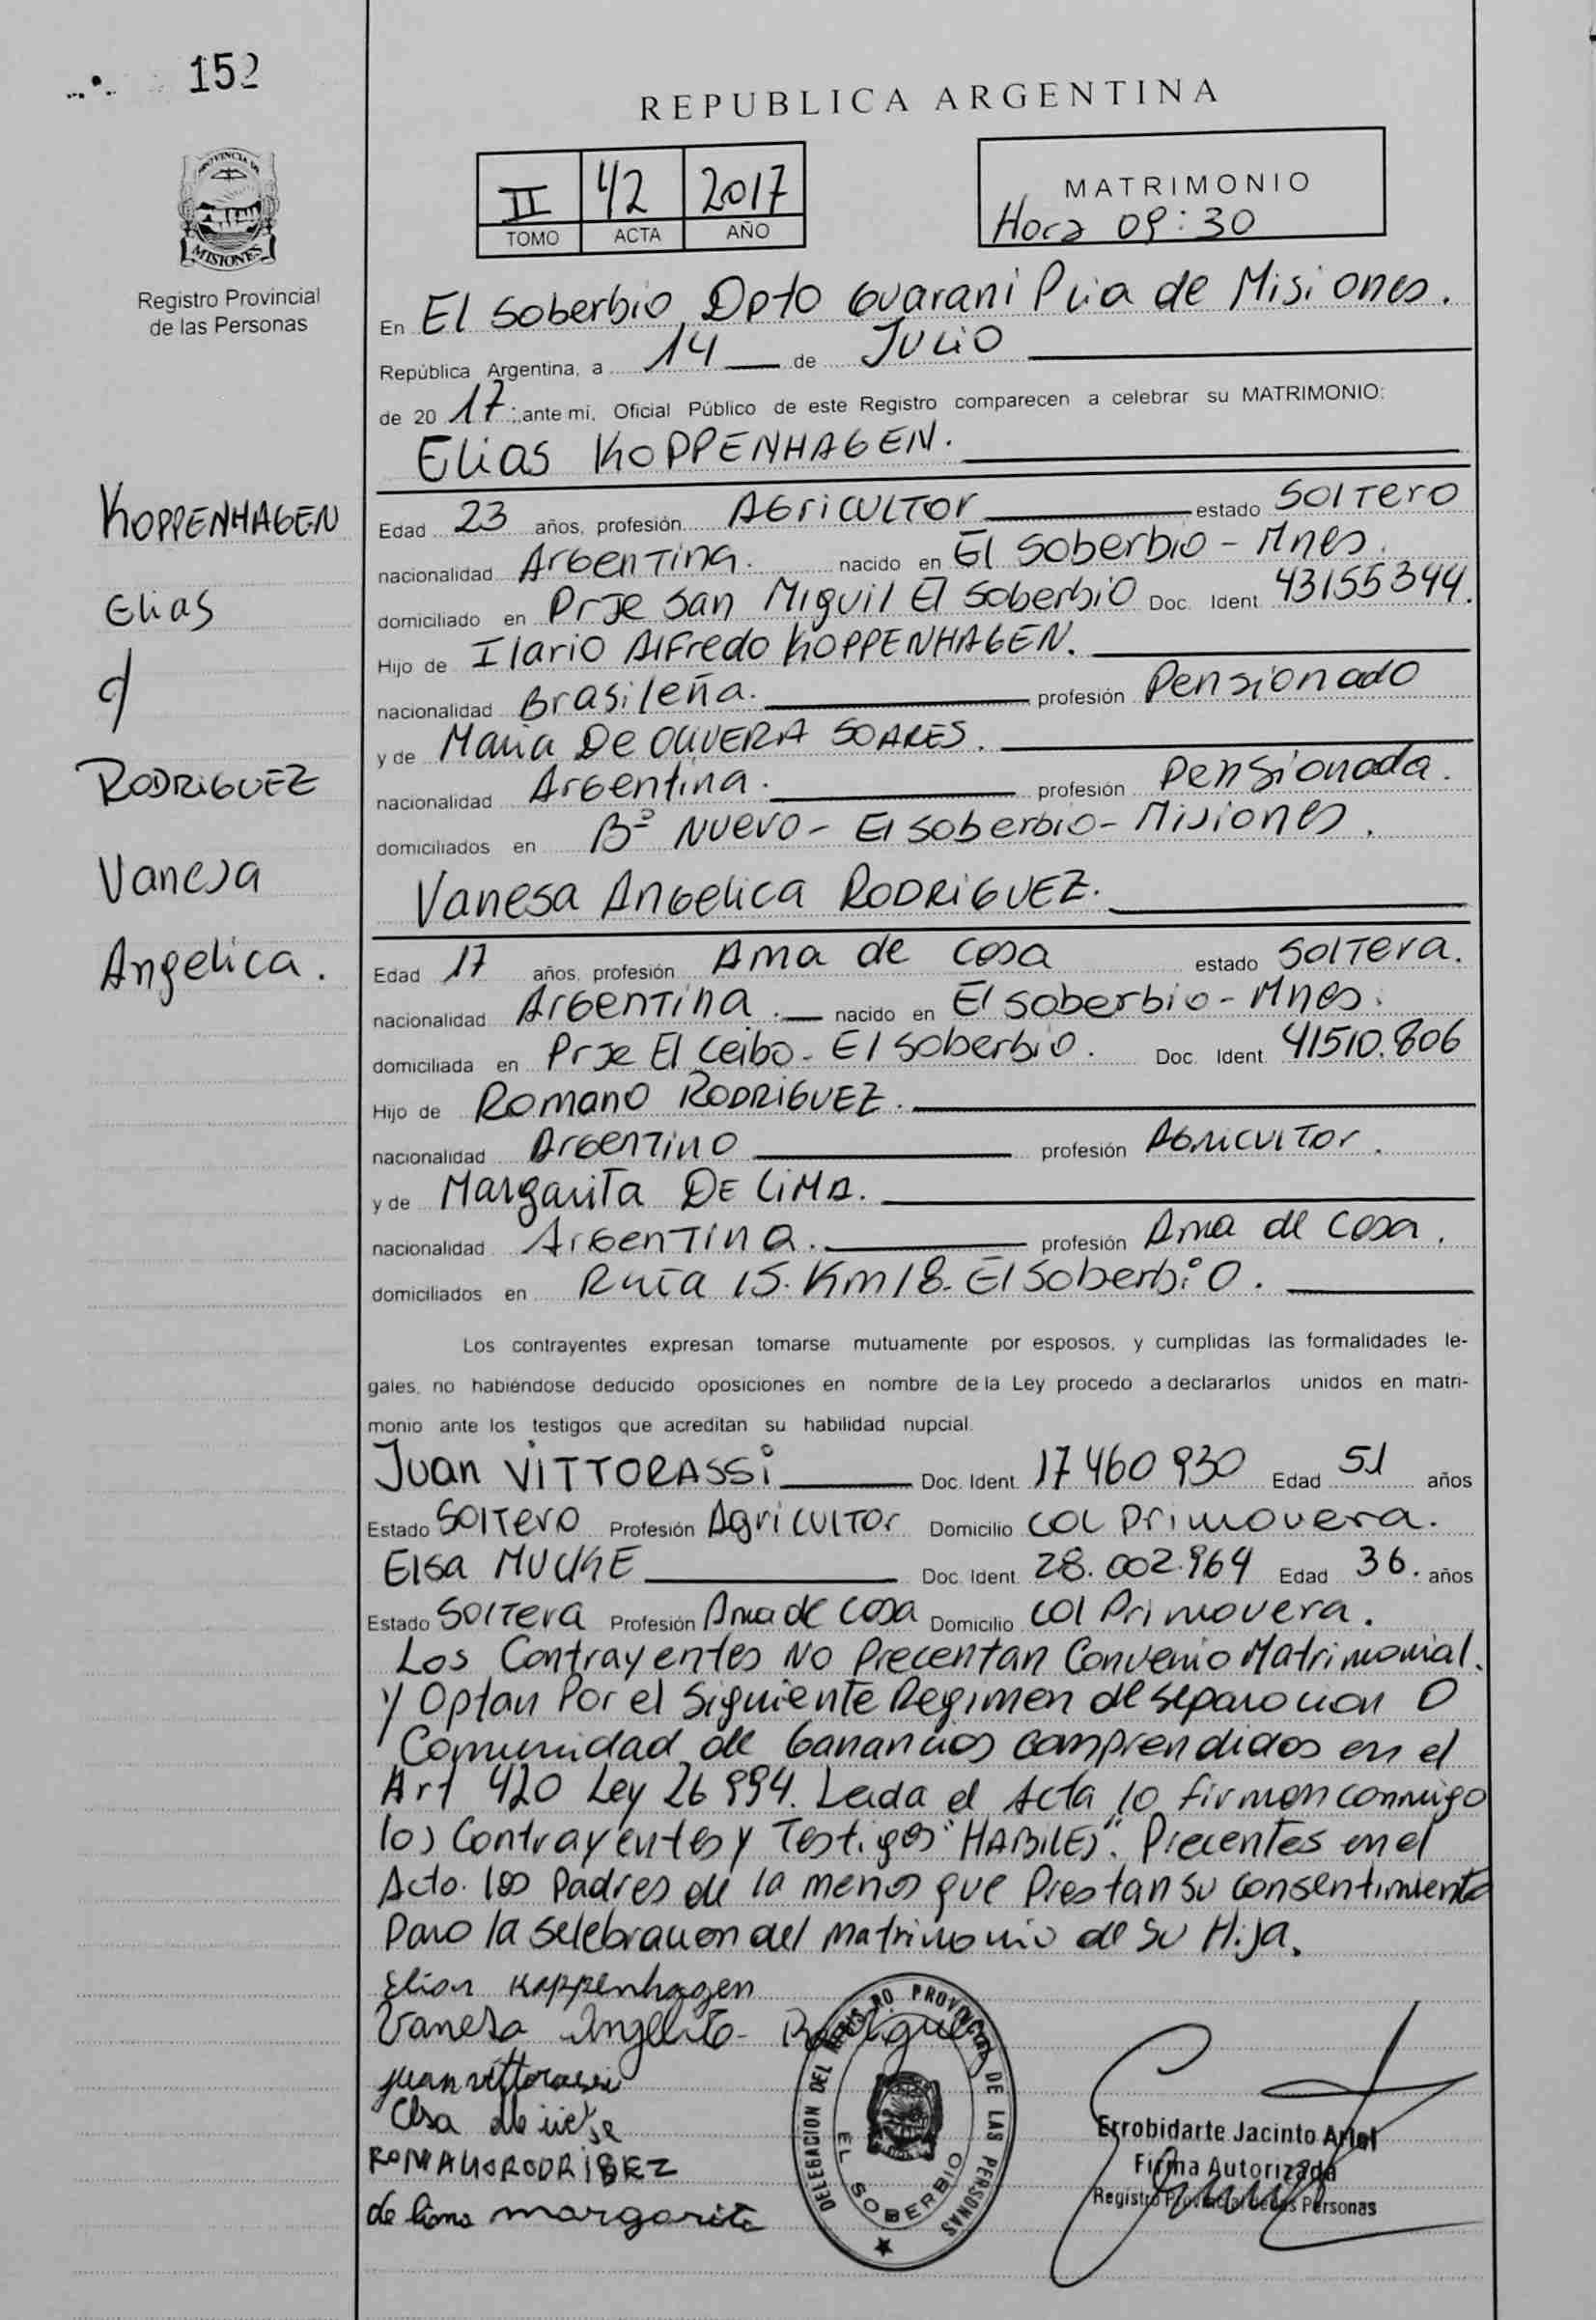 152
REPUBLICA ARGENTINA
PROVINCIA DE
MISIONES
Registro Provincial
de las Personas
II 42 2017
TOMO ACTA AÑO
MATRIMONIO
Hora 09:30
En El Soberbio Dpto Guarani Pcia de Misiones.
República Argentina, a 14 de Julio
de 2017; ante mi, Oficial Público de este Registro comparecen a celebrar su MATRIMONIO:
Elias KOPPENHAGEN.
KOPPENHAGEN
Elias
c/
RODRIGUEZ
Vanesa
Angelica.
Edad 23 años, profesión AGriCULTOr estado SOlTerO
nacionalidad ArGenTina. nacido en El Soberbio - Mnes.
domiciliado en Prje San Miguil El Soberbio Doc. Ident. 43155344.
Hijo de Ilario Alfredo KOPPENHAGEN.
nacionalidad Brasileña. profesión Pensionado
y de Maria De OLIVERA SOARES.
nacionalidad Argentina. profesión Pensionada.
domiciliados en Bº Nuevo - El Soberbio - Misiones.
Vanesa Angelica RODRIGUEZ.
Edad 17 años, profesión Ama de Casa estado SolTera.
nacionalidad ArGenTina. nacido en El Soberbio - Mnes.
domiciliada en Prje El Ceibo - El Soberbio. Doc. Ident. 41510.806
Hijo de Romano RODRIGUEZ.
nacionalidad ArGenTino profesión AGriculTor.
y de Margarita DE LIMA.
nacionalidad ArGenTina. profesión Ama de Casa.
domiciliados en Ruta 15. Km 18. El Soberbio.
Los contrayentes expresan tomarse mutuamente por esposos, y cumplidas las formalidades le-
gales, no habiéndose deducido oposiciones en nombre de la Ley procedo a declararlos unidos en matri-
monio ante los testigos que acreditan su habilidad nupcial.
Juan VITTORASSi Doc. Ident. 17460930 Edad 51 años
Estado SOlTero Profesión AgriculTor Domicilio COL Primavera.
Elsa MUCKE Doc. Ident. 28.002.964 Edad 36. años
Estado SolTera Profesión Ama de Casa Domicilio Col Primavera.
Los Contrayentes No Precentan Convenio Matrimonial.
y Optan Por el Siguiente Regimen de Separacion O
Comunidad de Ganancias comprendidos en el
Art 420 Ley 26994. Leida el Acta lo firman conmigo
los Contrayentes y Testigos "HABILES". Precentes en el
Acto. los Padres de la menor que Prestan su consentimiento
Para la Selebracion del Matrimonio de Su Hija.
Elias Koppenhagen
Vanesa Angelica Rodriguez
juan vittorassi
Elsa
ROMANO RODRIGEZ
de lima margarita
DELEGACION DEL REGISTRO PROVINCIAL DE LAS PERSONAS
EL SOBERBIO
Errobidarte Jacinto Ariel
Firma Autorizada
Registro Provincial de las Personas